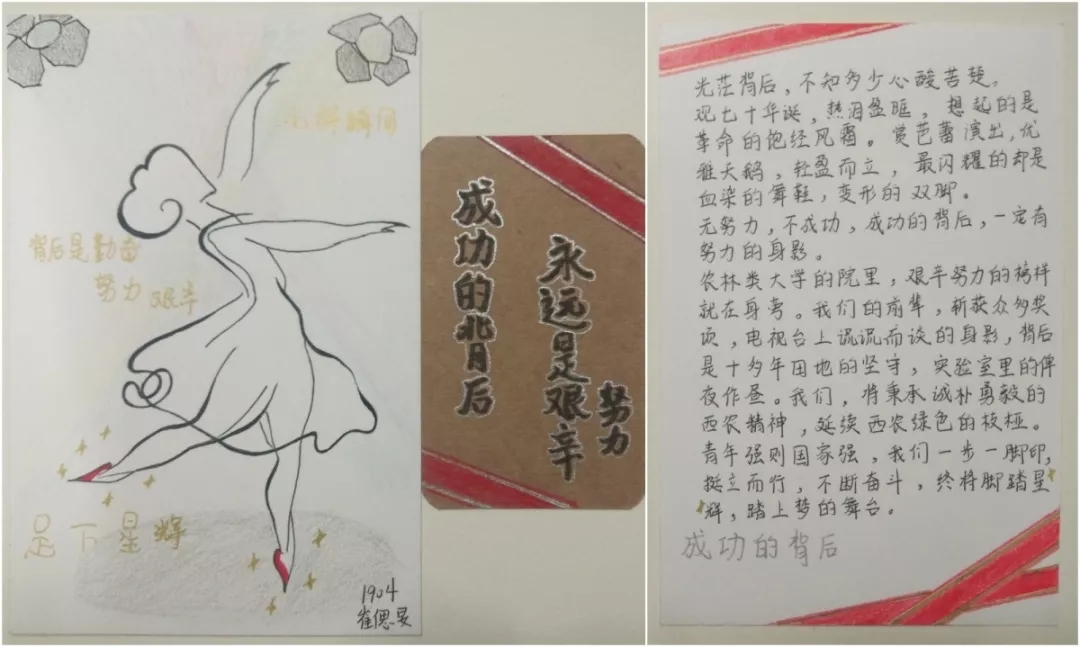 瞬间
背后是勤奋
努力 艰辛
足下星辉
1904
崔偲旻
成功的背后
永远是艰辛
努力
光茫背后，不知多少心酸苦楚。
观七十华诞，热泪盈眶，想起的是
革命的饱经风霜。赏芭蕾演出，优
雅天鹅，轻盈而立，最闪耀的却是
血染的舞鞋，变形的双脚。
无努力，不成功，成功的背后，一定有
努力的身影。
农林类大学的院里，艰辛努力的榜样
就在身旁。我们的前辈，斩获众多奖
项，电视台上侃侃而谈的身影，背后
是十多年田地的坚守，实验室里的俾
夜作昼。我们，将秉承诚朴勇毅的
西农精神，延续西农绿色的枝桠。
青年强则国家强，我们一步一脚印，
挺立而行，不断奋斗，终将脚踏星
辉，踏上梦的舞台。
成功的背后